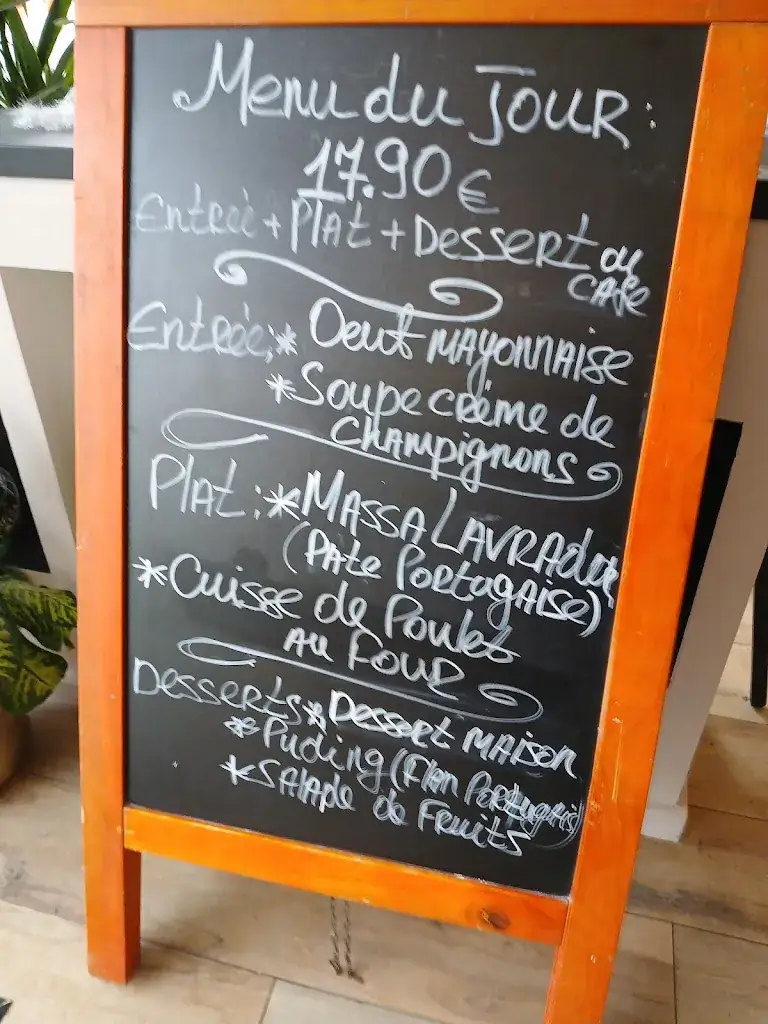 Menu du JOUR :
17.90€
Entreé + Plat + Dessert ou
café
Entrée: * Oeuf MAyonnAise
* Soupe crème de
CHAmpignons
Plat : * MASSA LAVRAdor
(PAte Portugaise)
* Cuisse de Poulet
Au Four
Desserts * Dessert MAison
* Puding (Flan Portugais)
* SAlade de Fruits